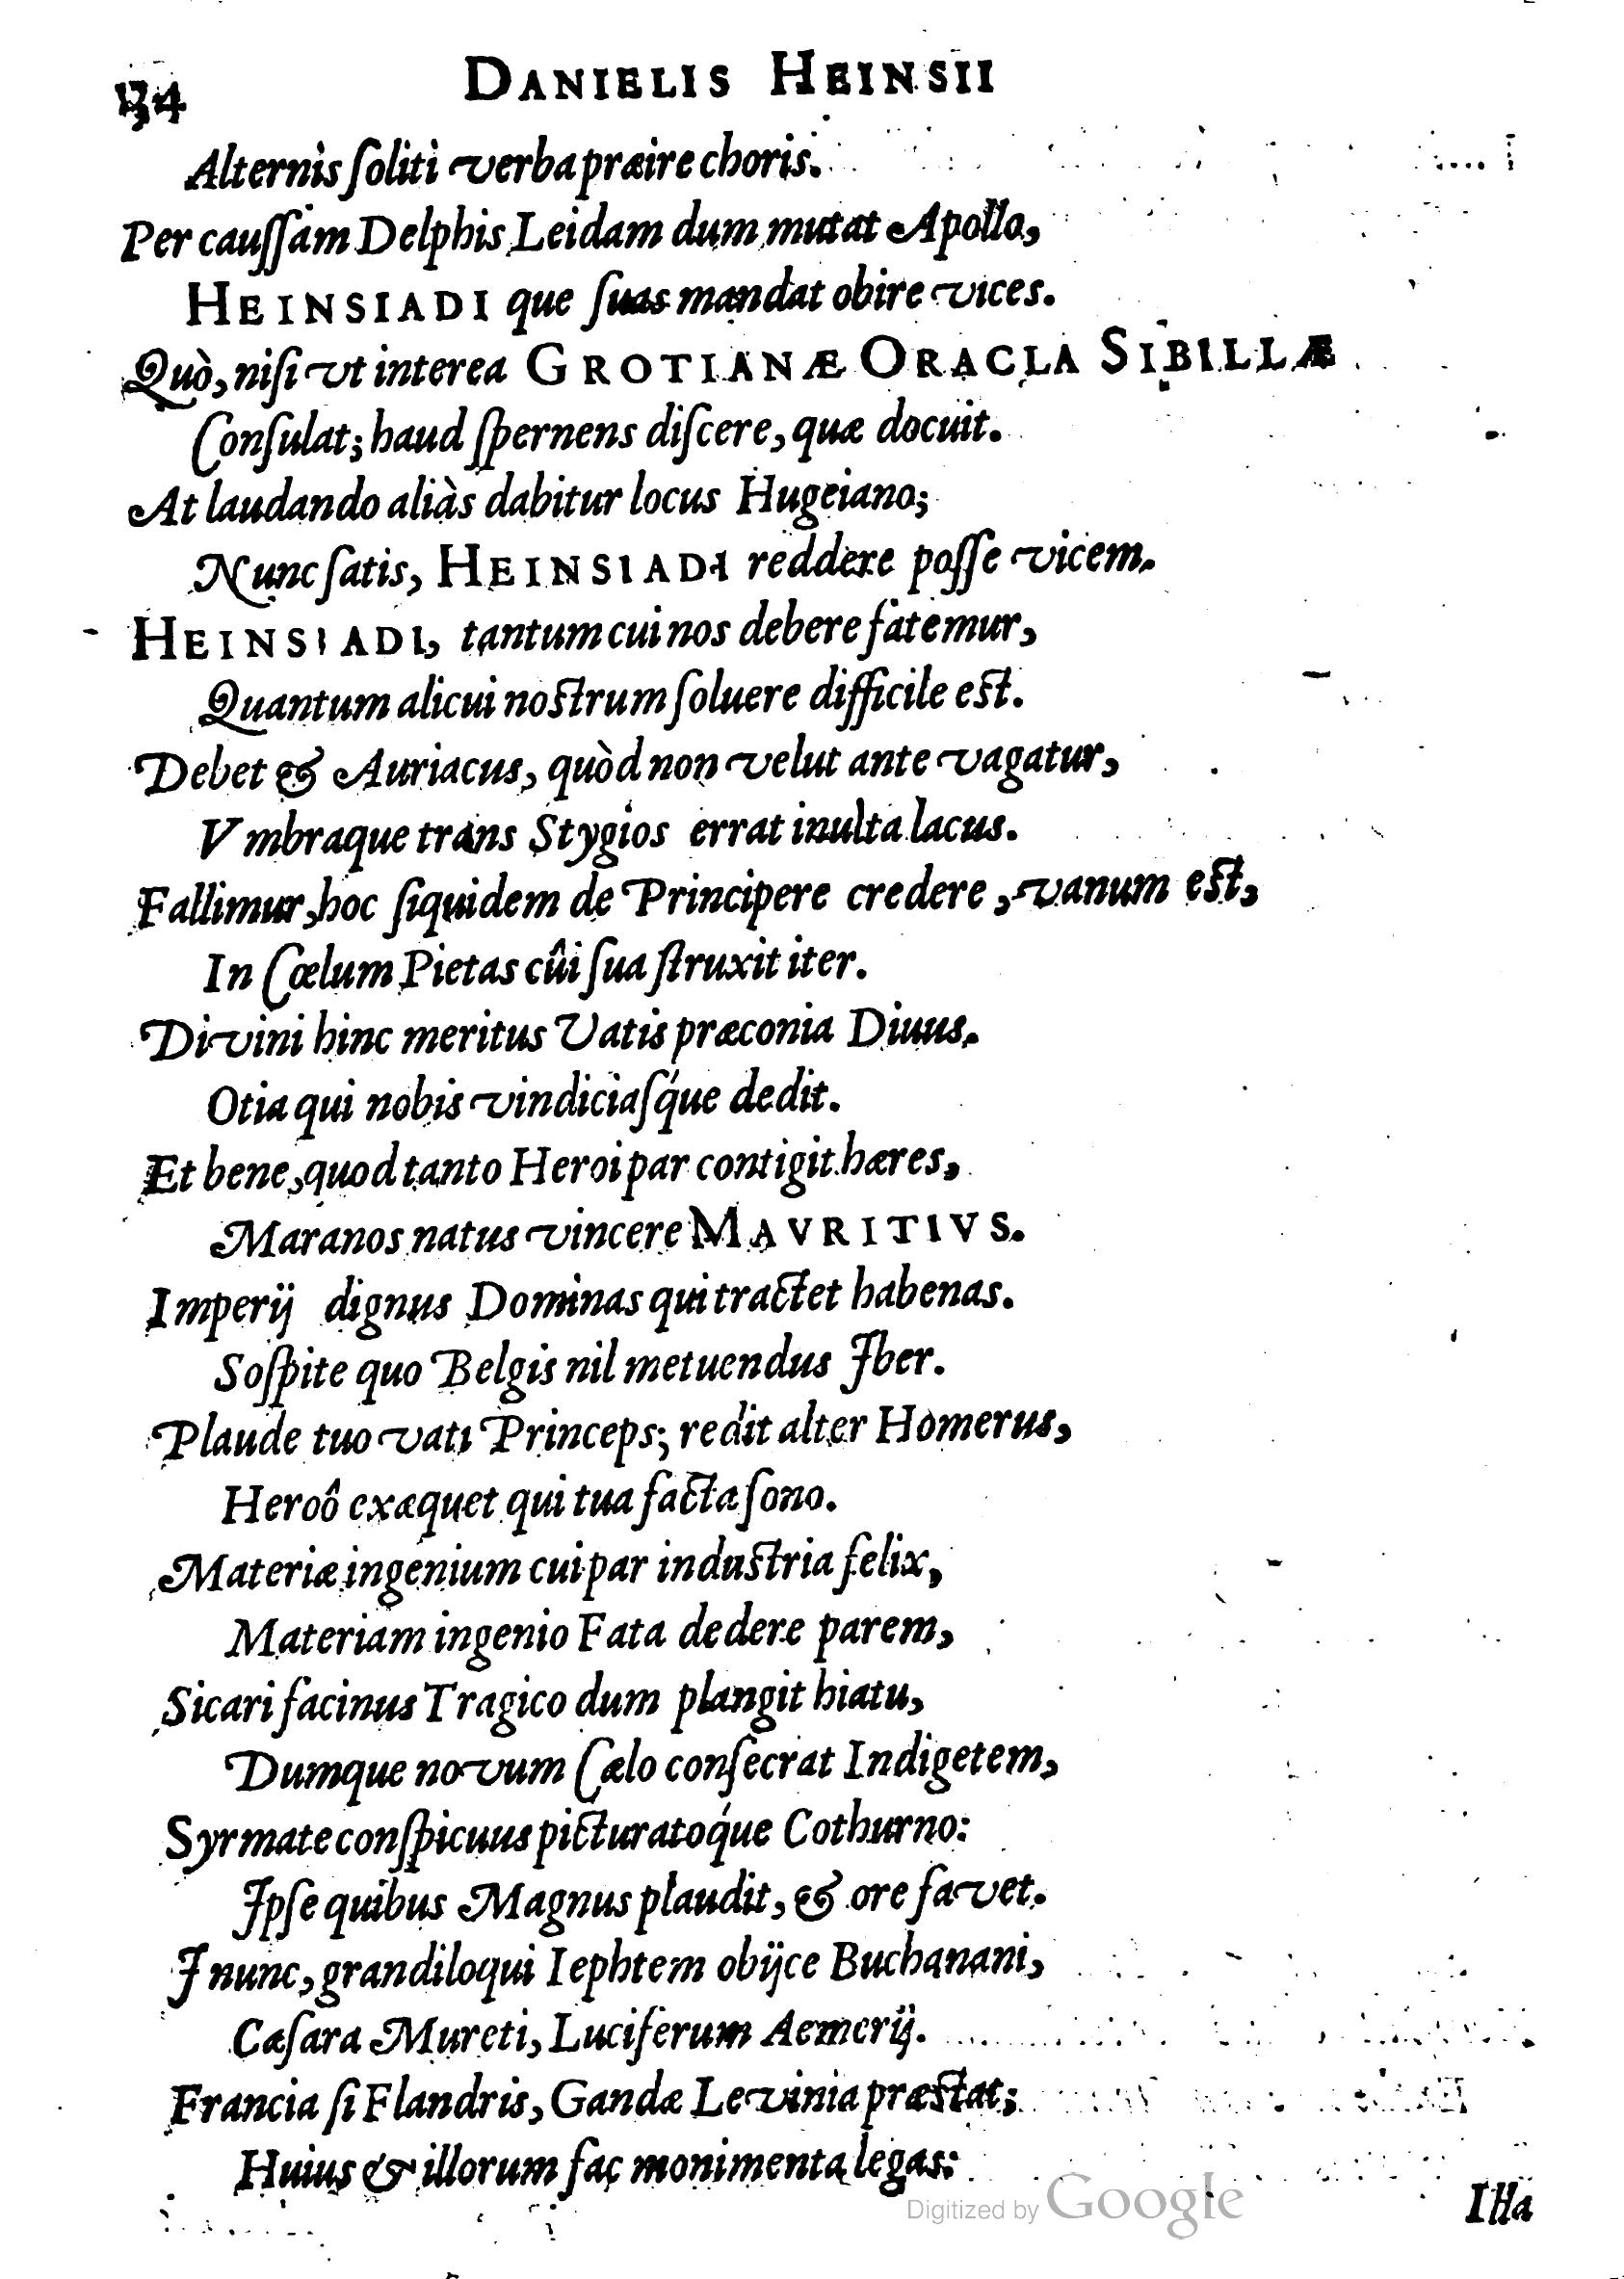 134 DANIELIS HEINSII
Alternis ſoliti verba præire choris.
Per cauſſam Delphis Leidam dum mutat Apollo,
HEINSIADI que ſuas mandat obire vices.
Quò, niſi vt interea GROTIANÆ ORACLA SIBILLÆ
Conſulat; haud ſpernens diſcere, quæ docuit.
At laudando aliàs dabitur locus Hugeiano;
Nunc ſatis, HEINSIADI reddere poſſe vicem.
HEINSIADI, tantum cui nos debere fatemur,
Quantum alicui noſtrum ſoluere difficile eſt.
Debet & Auriacus, quòd non velut ante vagatur,
Vmbraque trans Stygios errat inulta lacus.
Fallimur, hoc ſiquidem de Principere credere, vanum eſt,
In Cœlum Pietas cûi ſua ſtruxit iter.
Divini hinc meritus Vatis præconia Diuus.
Otia qui nobis vindiciaſq́ue dedit.
Et bene, quod tanto Heroi par contigit hæres,
Maranos natus vincere MAVRITIVS.
Imperij dignus Dominas qui tractet habenas.
Soſpite quo Belgis nil metuendus Iber.
Plaude tuo vati Princeps; redit alter Homerus,
Heroô exæquet qui tua facta ſono.
Materiæ ingenium cui par induſtria felix,
Materiam ingenio Fata dedere parem,
Sicari facinus Tragico dum plangit hiatu,
Dumque novum Cælo conſecrat Indigetem,
Syrmate conſpicuus picturatoq́ue Cothurno:
Ipſe quibus Magnus plaudit, & ore favet.
I nunc, grandiloqui Iephtem obijce Buchanani,
Cæſara Mureti, Luciferum Aemerij.
Francia ſi Flandris, Gandæ Levinia præſtat;
Huius & illorum fac monimenta legas:
Illa
Digitized by Google